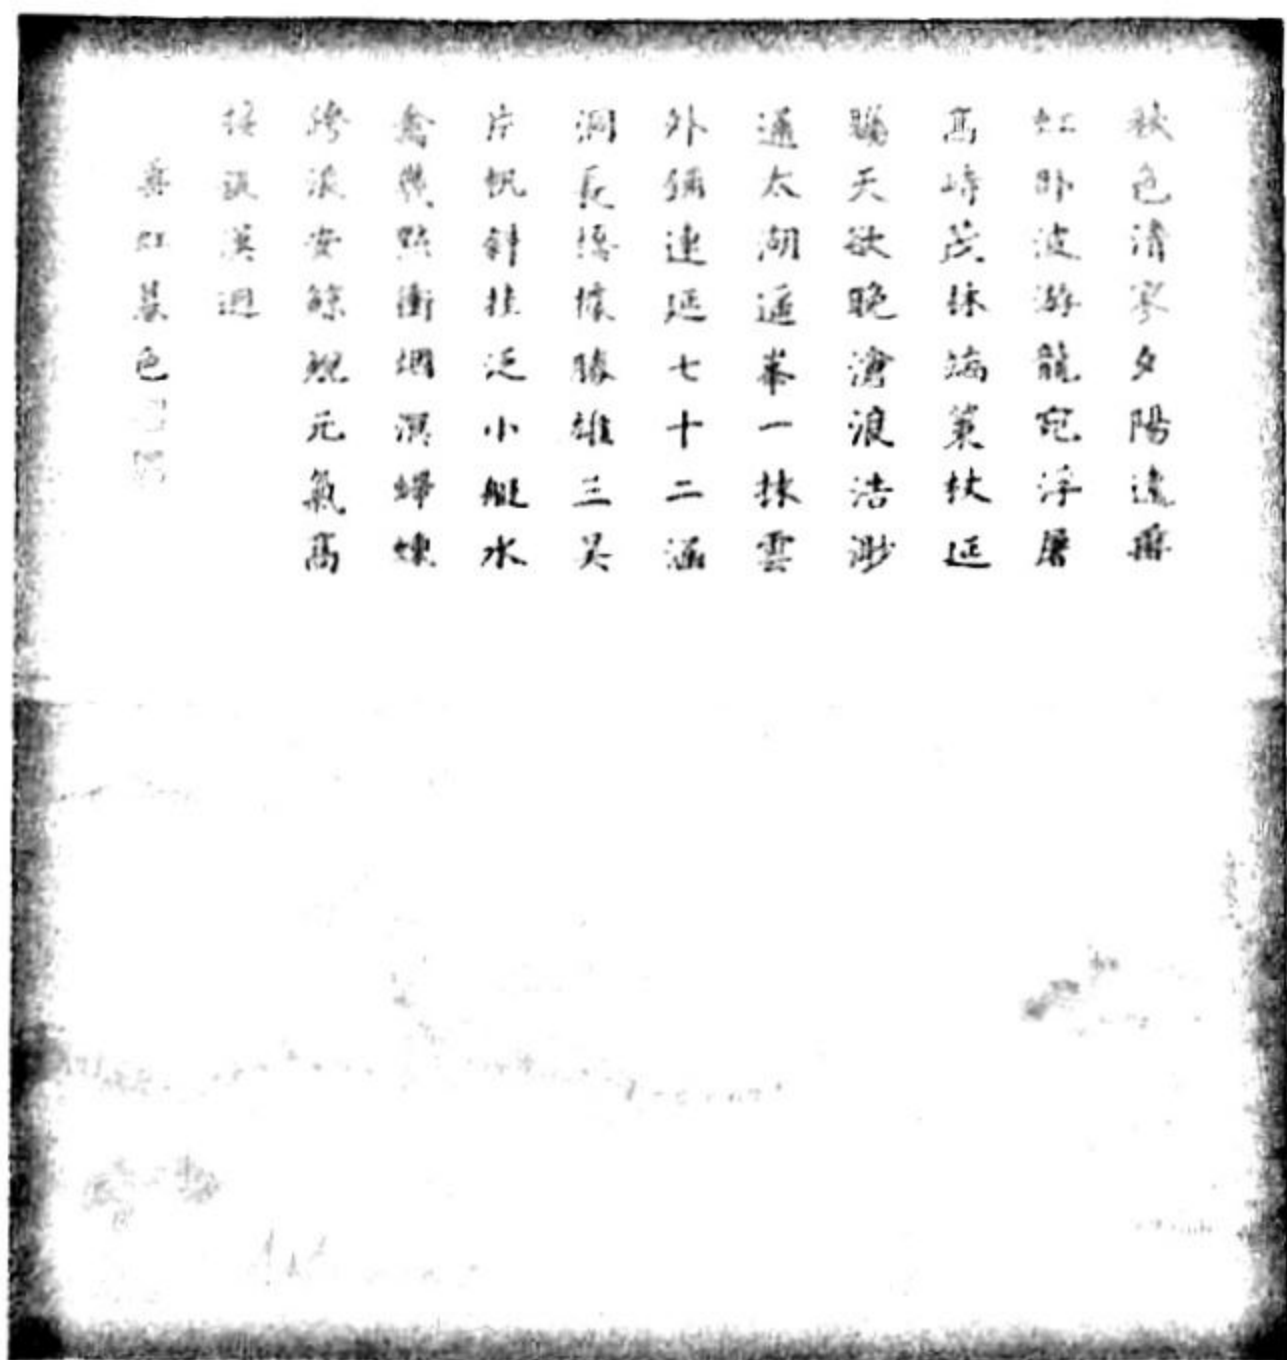 秋色清寥夕陽遠垂
虹卧波游龍宛浮屠
高峙茂林端策杖延
矚天欲晚滄浪浩渺
通太湖遥峯一抹雲
外彌連延七十二涵
洞長橋據勝雄三吴
片帆斜挂泛小艇水
禽幾點衝烟溟蠏蝀
跨浪安鯨鯢元氣高
接銀漢迥
垂虹暮色